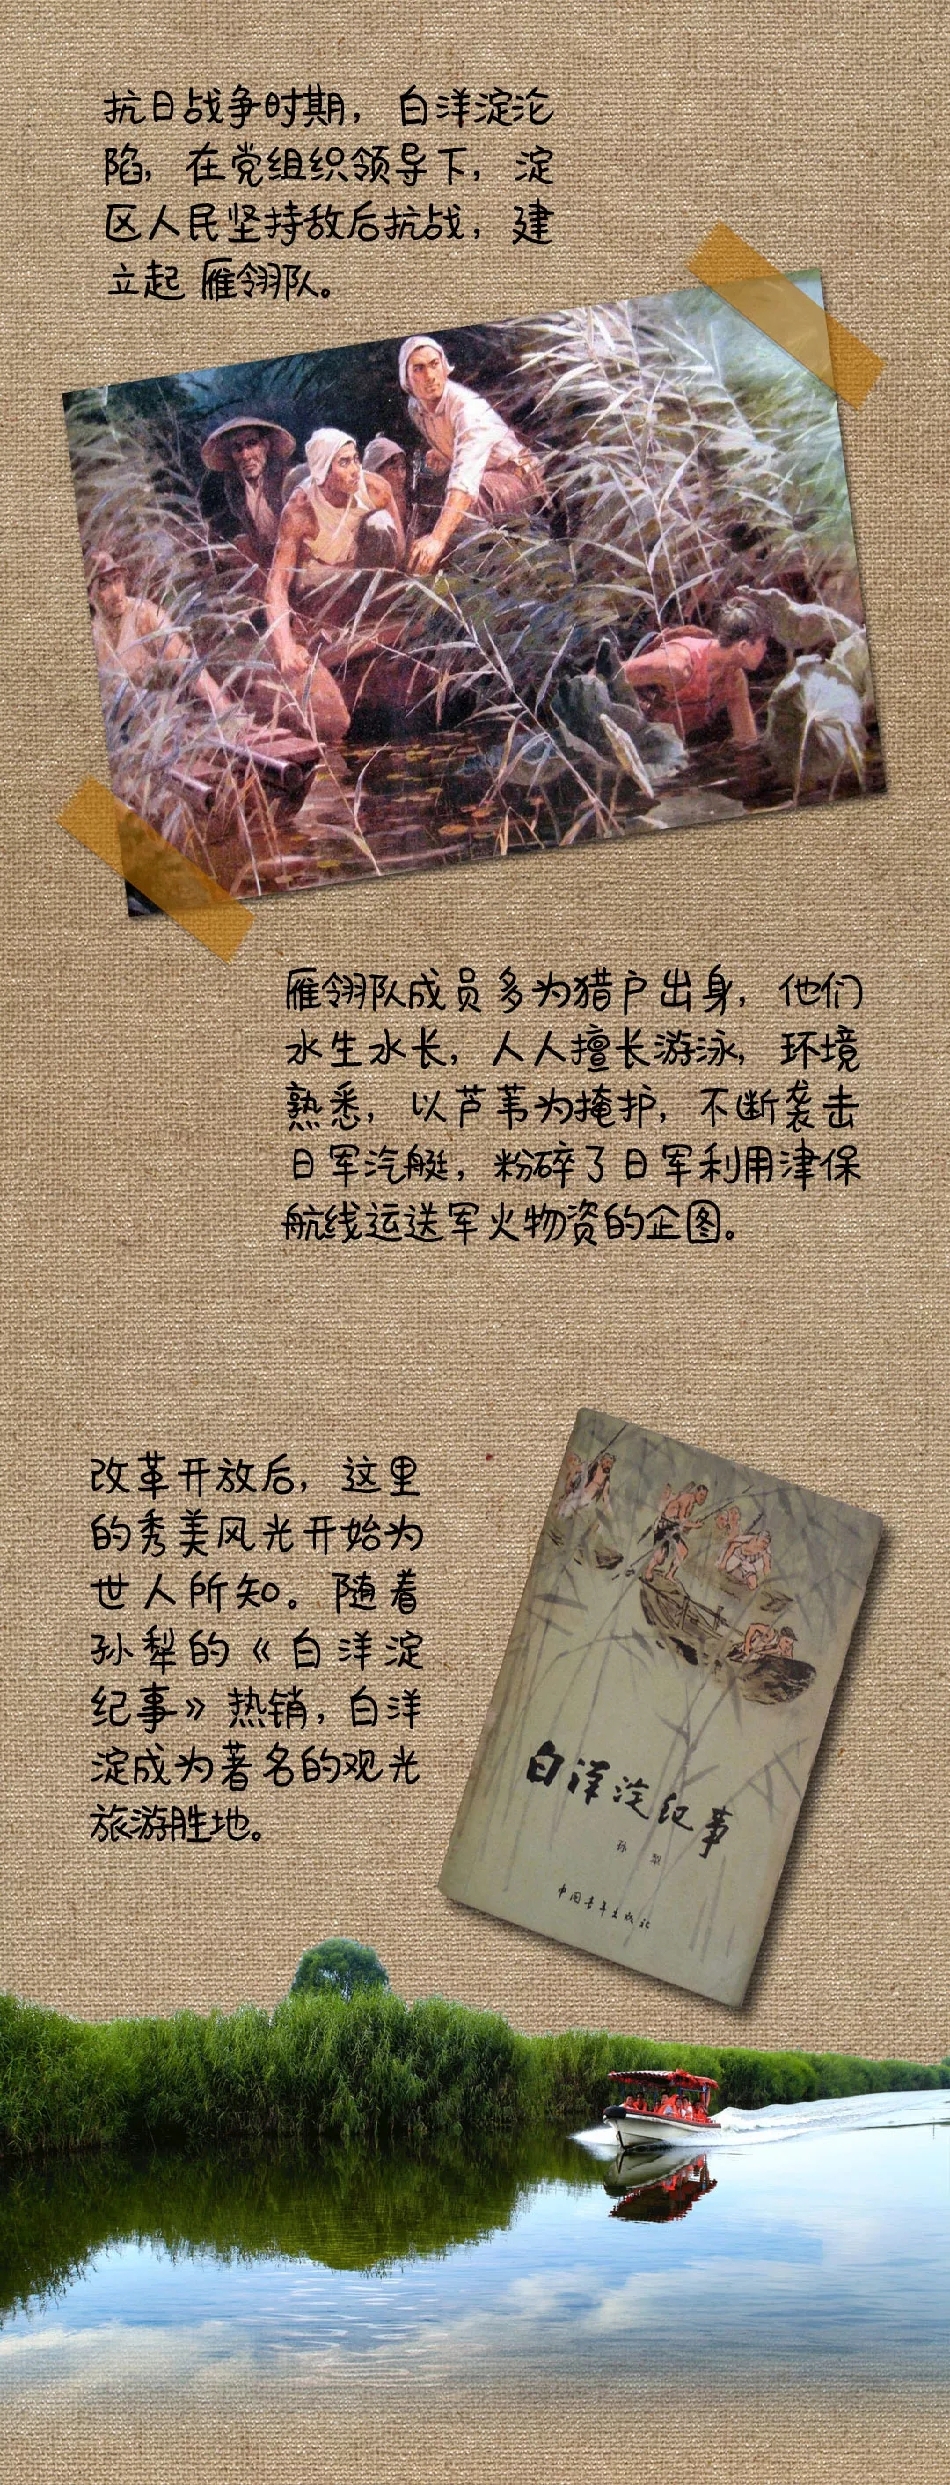 抗日战争时期，白洋淀沦
陷，在党组织领导下，淀
区人民坚持敌后抗战，建
立起 雁翎队。
雁翎队成员多为猎户出身，他们
水生水长，人人擅长游泳，环境
熟悉，以芦苇为掩护，不断袭击
日军汽艇，粉碎了日军利用津保
航线运送军火物资的企图。
改革开放后，这里
的秀美风光开始为
世人所知。随着
孙犁的《白洋淀
纪事》热销，白洋
淀成为著名的观光
旅游胜地。
白洋淀纪事
孙 犁
中国青年出版社